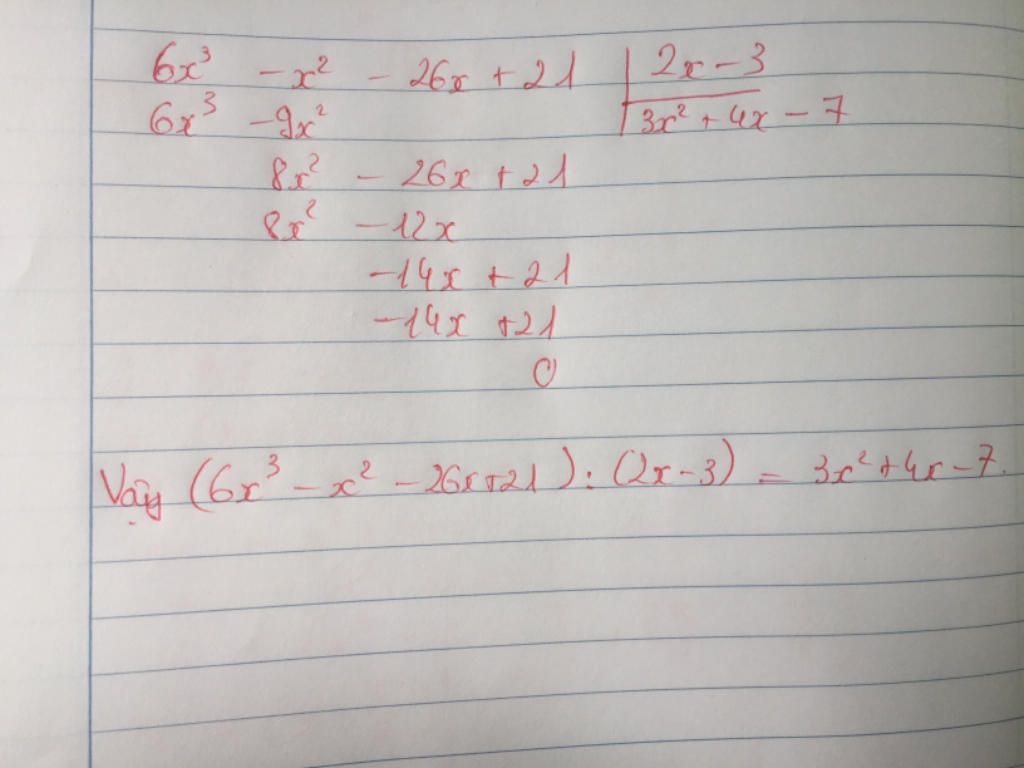 6x³ - x² - 26x + 21 | 2x - 3
6x³ - 9x² | 3x² + 4x - 7
8x² - 26x + 21
8x² - 12x
-14x + 21
-14x + 21
0
Vậy (6x³ - x² - 26x + 21) : (2x - 3) = 3x² + 4x - 7.